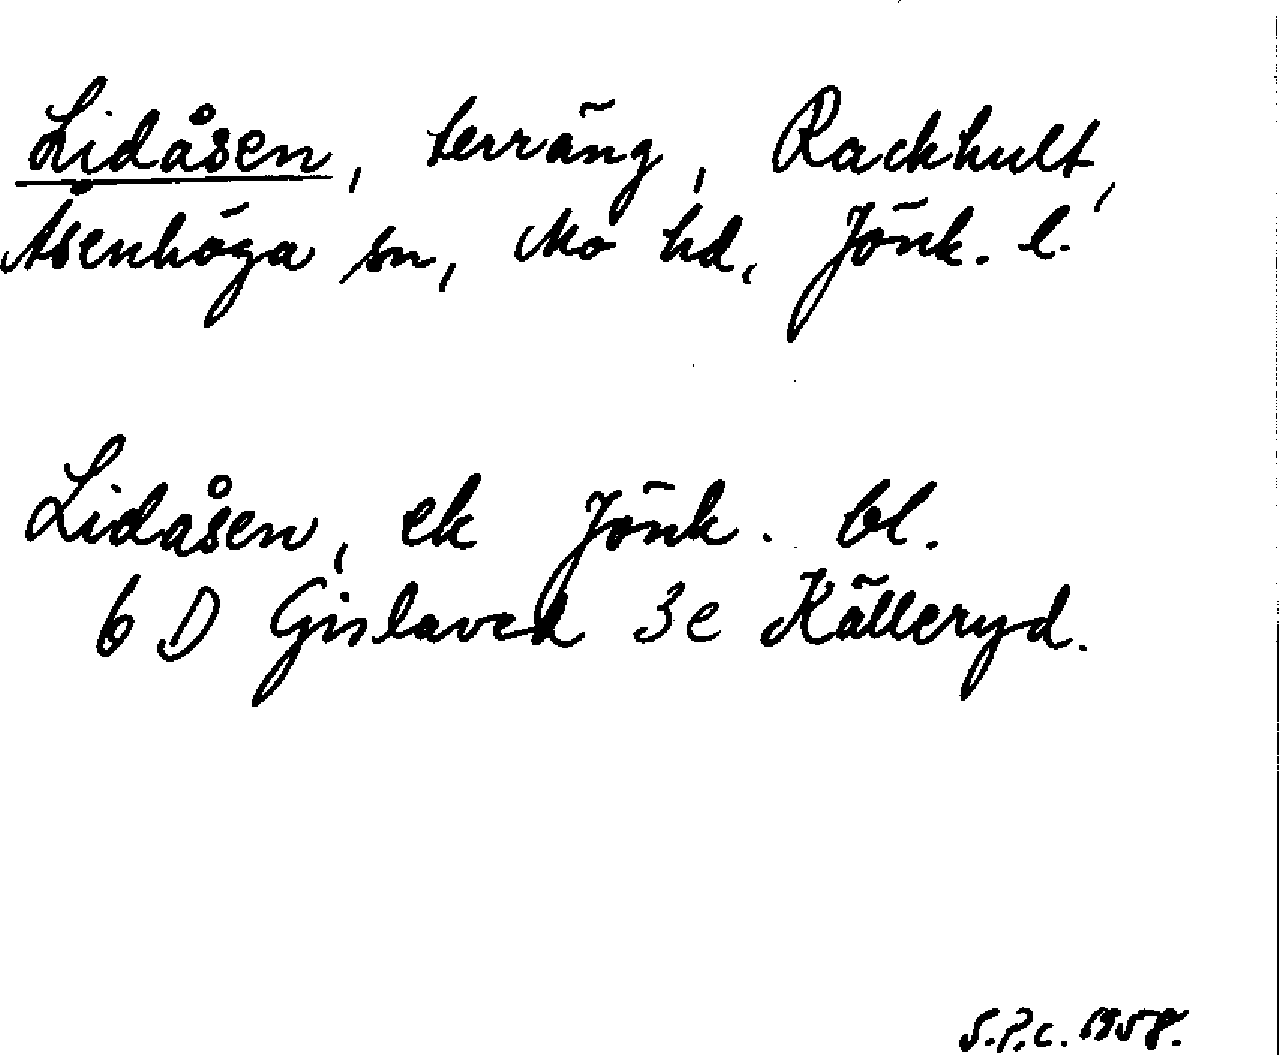 Lidåsen, terräng, Rackhult,
Åsenhöga sn, Mo hd, Jönk. l.
Lidåsen, ek Jönk. bl.
6 D Gislaved 3e Källeryd.
S.P.C. 1958.